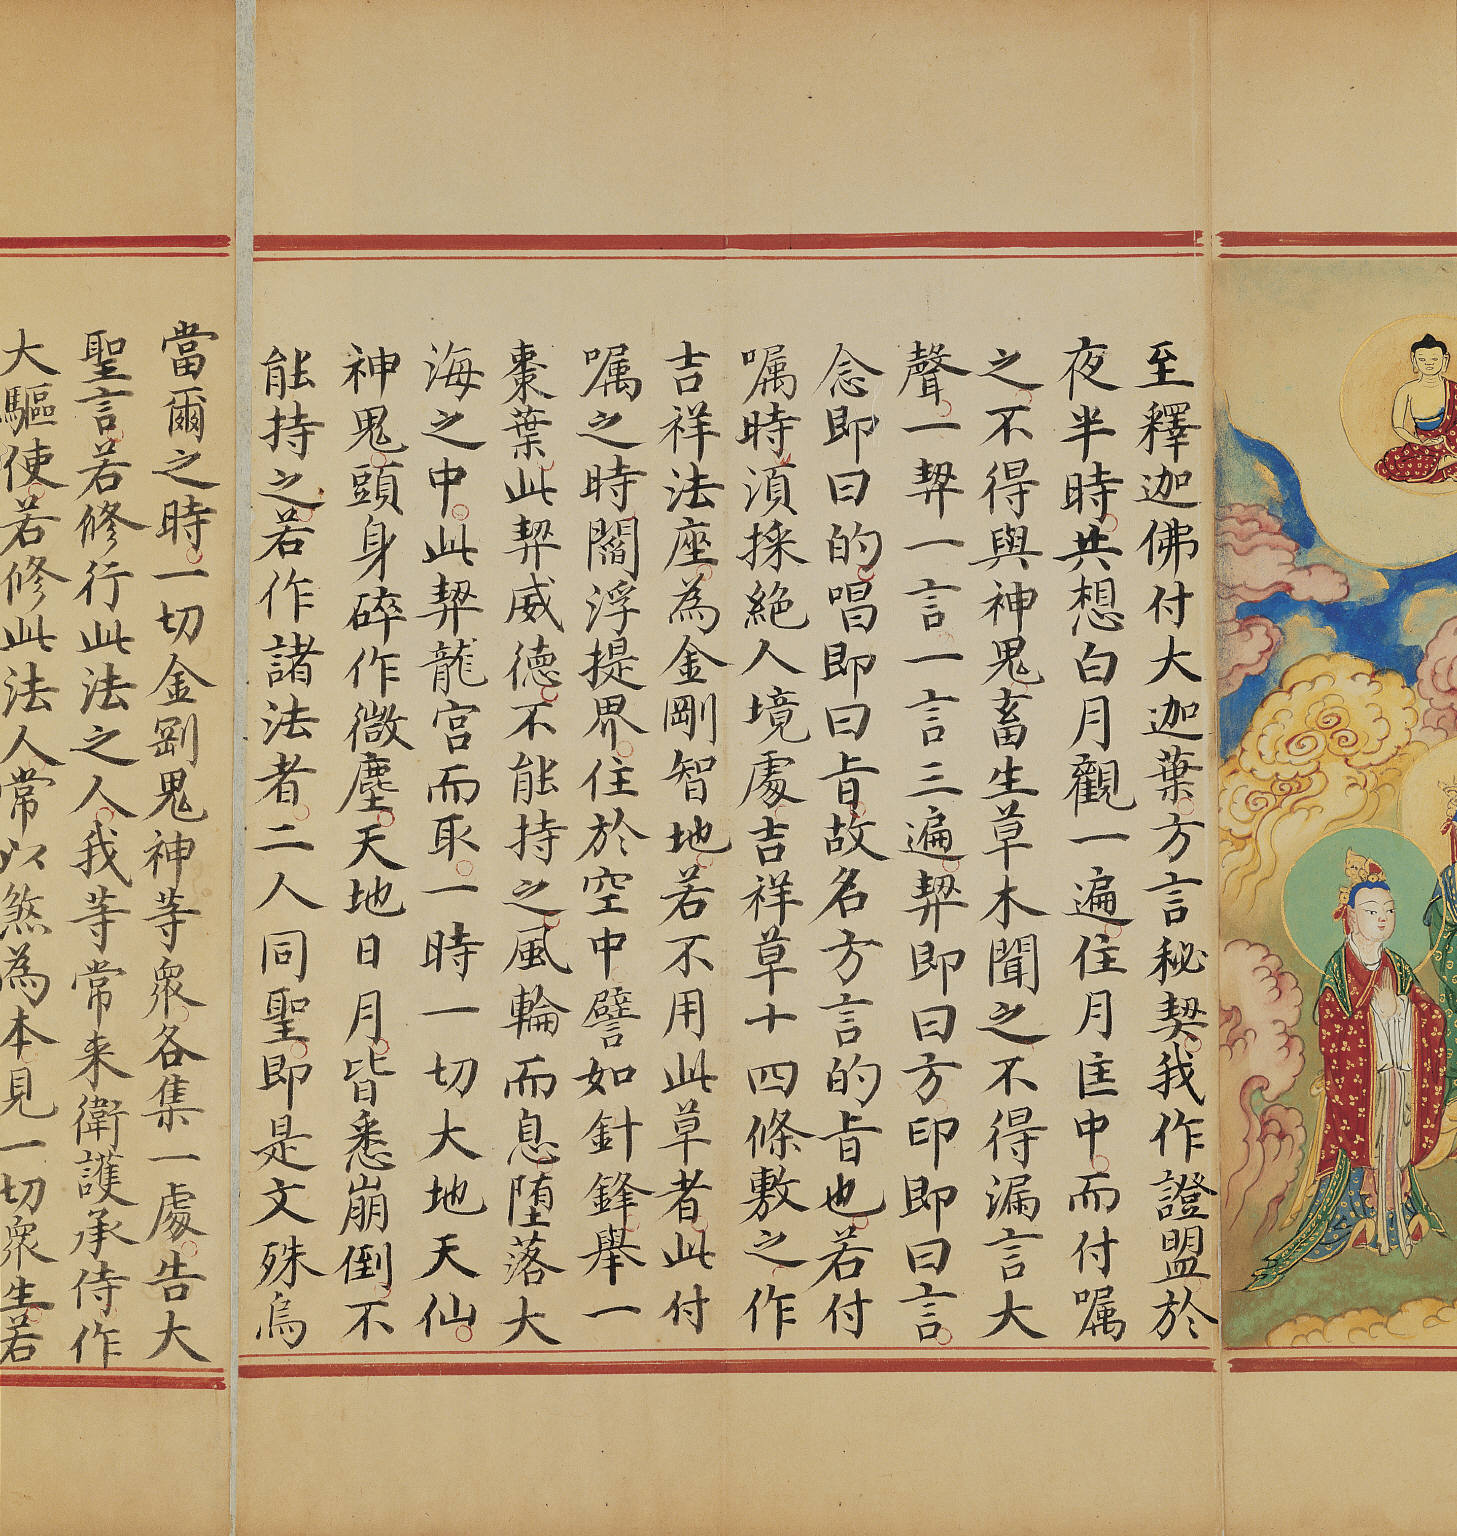 至釋迦佛付大迦葉方言秘契我作證盟於
夜半時共想白月觀一遍住月匡中而付嘱
之不得與神鬼畜生草木聞之不得漏言大
聲一契一言一言三遍契即曰方印即曰言
念即曰的唱即曰㫖故名方言的㫖也若付
嘱時湏採絶人境處吉祥草十四條敷之作
吉祥法座為金剛智地若不用此草者此付
嘱之時閻浮提界住於空中譬如針鋒舉一
棗葉此契威德不能持之風輪而息墮落大
海之中此契龍宮而取一時一切大地天仙
神鬼頭身碎作微塵天地日月皆悉崩倒不
能持之若作諸法者二人同聖即是文殊為
當爾之時一切金剛鬼神等衆各集一處告大
聖言若修行此法之人我等常来衛護承侍作
大驅使若修此法人常以煞為本見一切衆生若